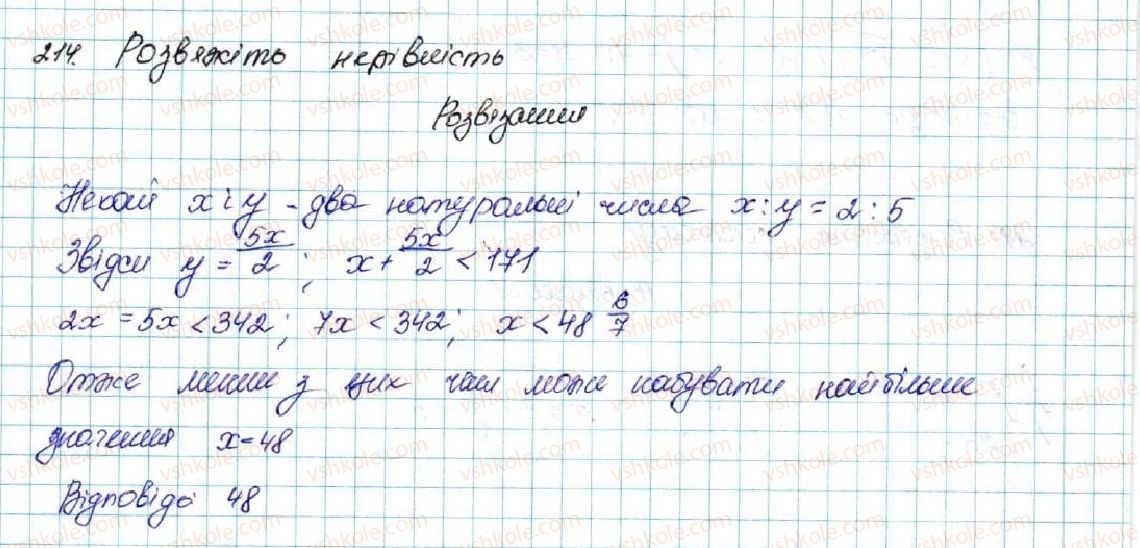 214. Розвяжіть нерівність
Розвязання
Нехай x і y - два натуральні числа x : y = 2 : 5
Звідси y = 5x/2 ; x + 5x/2 < 171
2x = 5x < 342 ; 7x < 342 ; x < 48 6/7
Отже менше з цих чисел може набувати найбільше
значення x = 48
Відповідь 48